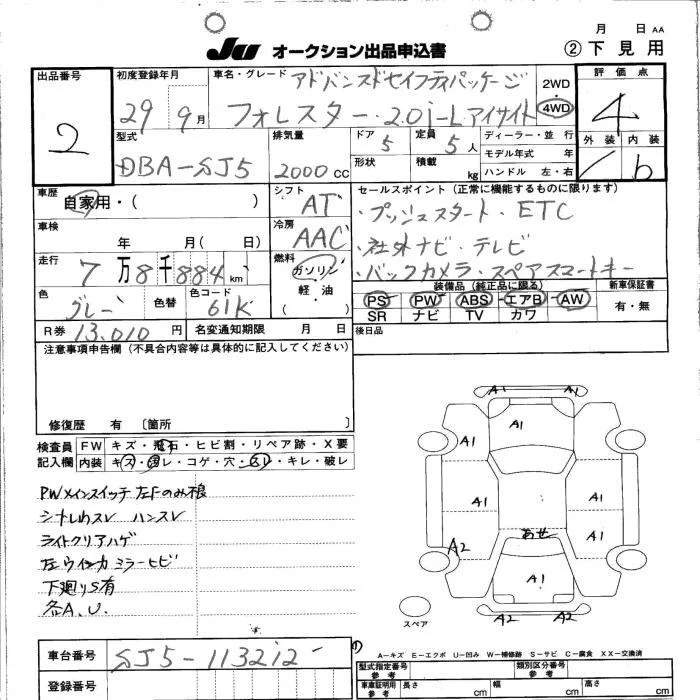 月 日 AA
JU オークション出品申込書 ②下見用
出品番号 2
初度登録年月 29年 9月
車名・グレード アドバンスドセイフティパッケージ
フォレスター・2.0i-Lアイサイト
2WD
4WD
評価点 4
外装 内装 b
型式 DBA-SJ5
排気量 2000 CC
ドア 5
定員 5人
形状
積載 kg
ディーラー・並 行
モデル年式 年
ハンドル 左・右
車歴 自家用・( )
シフト AT
セールスポイント (正常に機能するものに限ります)
・プッシュスタート・ETC
・社外ナビ・テレビ
・バックカメラ・スペアスマートキー
車検 年 月( 日)
冷房 AAC
走行 7万8千884km
燃料 ガソリン
軽・油
( )
色 グレー
色替
色コード 61K
装備品 (純正品に限る)
PS PW ABS エアB AW
SR ナビ TV カワ
新車保証書
有・無
R券 13,010円
名変通知期限 月 日
後日品
注意事項申告欄 (不具合内容等は具体的に記入してください)
修復歴 有 〔箇所 〕
検査員記入欄
FW キズ・飛石・ヒビ割・リペア跡・X要
内装 キズ・汚レ・コゲ・穴・スレ・キレ・破レ
PWメインスイッチ 左Fのみ
シナレカスレ ハンスレ
ライトクリアハゲ
左ウインカ ミラーヒビ
下廻りS有
各A.U.
A1 A1
A1
A1
A1 A1
A1
あせ
A2
A1
A2 A2
スペア
A-キズ E-エクボ U-凹み W-補修跡 S-サビ C-腐食 XX-交換済
車台番号 SJ5-113212
登録番号
型式指定番号 参考
類別区分番号 参考
車庫証明用 参考
長さ cm
幅 cm
高さ cm